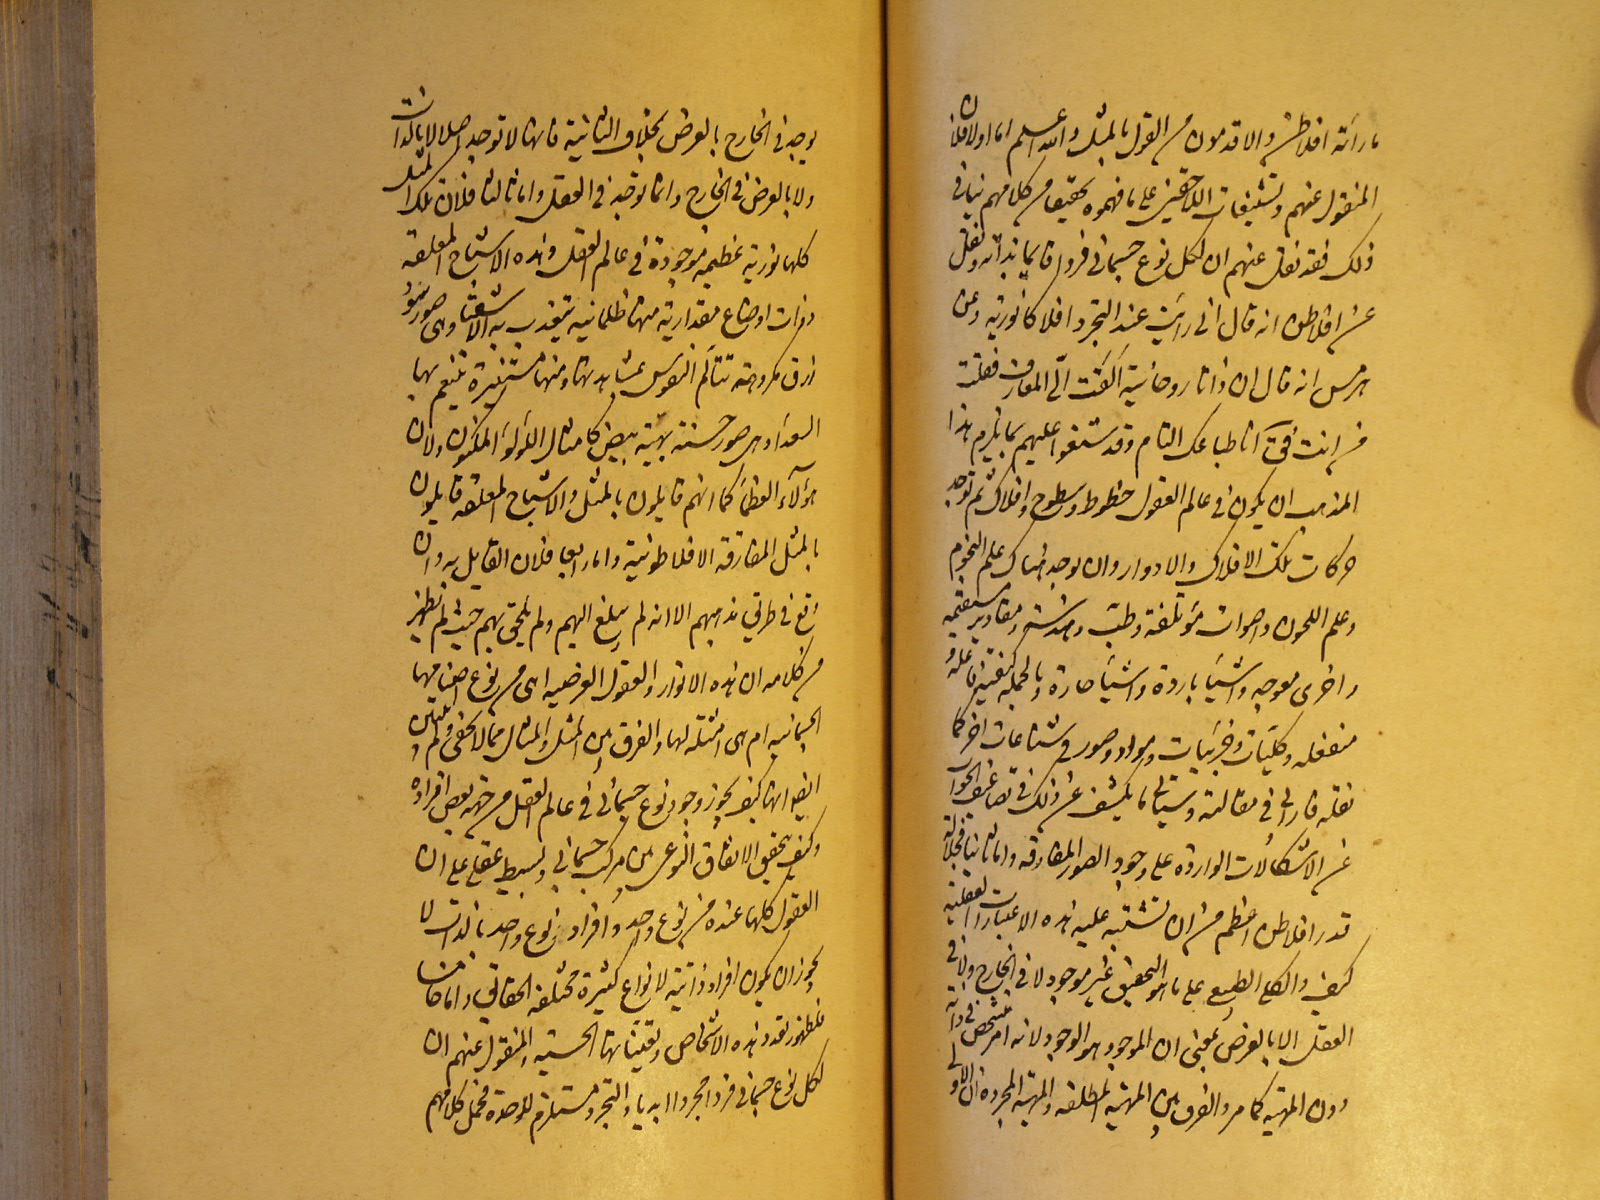 ما رآه افلاطن والاقدمون من القول بالمثل والله اعلم اما اولا فلان
المنقول عنهم وتشنيعات اللاحقين على ما فهموه تحقيقا من كلامهم ينافي
ذلك فقد نقل عنهم ان لكل نوع جسماني فردا قايما بذاته ونقل
عن افلاطن انه قال اني رايت عند التجرد افلاكا نورية وعن
هرمس انه قال ان ذاتا روحانية القت الى المعارف فقلت
من انت فقال انا طباعك التام وقد شنعوا عليهم بما يلزم هذا
المذهب ان يكون في عالم العقول خطوط وسطوح وافلاك ثم توجد
حركات تلك الافلاك والادوار وان يوجد هناك علم النجوم
وعلم اللحون واصوات مؤتلفة وطب وهندسة ومقادير مستقيمة
واخرى معوجه واشيا باردة واشيا حارة وبالجملة كيفيتين فاعله و
منفعله وكليات وجزئيات ومواد وصور وشناعات اخر كما
نقله فارابي في مقالته وسياتي ما يكشف عن ذلك في تضاعيف الجواب
عن الاشكالات الواردة على وجود الصور المفارقه واما ثانيا فجلالة
قدر افلاطن اعظم من ان تشتبه عليه هذه الاعتبارات العقلية
كيف والكلي الطبيعي على ما هو التحقيق غير موجود لا في الخارج ولا في
العقل الا بالعرض بمعنى ان الموجود هو الوجود لانه امر متشخص في ذاته
دون المهية كما مر والفرق بين المهية المطلقه والمهية المجرده ان الاولى
يوجد في الخارج بالعرض بخلاف الثانية فانها لا توجد اصلا لا بالذات
ولا بالعرض في الخارج وانما توجد في العقل واما ثالثا فلان تلك المثل
كلها نورية عظيمة موجودة في عالم العقل وهذه الاشباح المعلقه
ذوات اوضاع مقدارية منها ظلمانيه يتعذب به الاشقيا وهي صور سود
زرق مكروهة تتألم النفوس بمشاهدتها ومنها مستنيرة يتنعم بها
السعدآ وهي صور حسنة بهية بيض كامثال اللؤلؤ المكنون ولان
هؤلآء العظمآء كما انهم قايلون بالمثل والاشباح المعلقه قايلون
بالمثل المفارقه الافلاطونية واما رابعا فلان القايل به وان
وقع في طرقي مذهبهم الا انه لم يبلغ اليهم ولم يلحق بهم حيث لم يظهر
من كلامه ان هذه الانوار والعقول العرضيه اهي من نوع اصنامها
الجسمانيه ام هي امثلة لها والفرق بين المثل والمثال مما لا يخفى ولم يبين
ايضا انها كيف يجوز وجود نوع جسماني في عالم العقل من جهة بعض افراده
وكيف يتحقق الاتفاق النوعي بين مركب جسماني وبسيط عقلي على ان
العقول كلها عنده من نوع واحد وافراد نوع واحد بالذات لا
يجوز ان يكون افراد ذاتية لانواع كثيرة مختلفه الحقايق واما خامسا
فلظهور تعدد هذه الاشخاص وتعيناتها الحسيه والمنقول عنهم ان
لكل نوع جسماني فردا مجردا ابديا والتجرد مستلزم للوحدة فحمل كلامهم